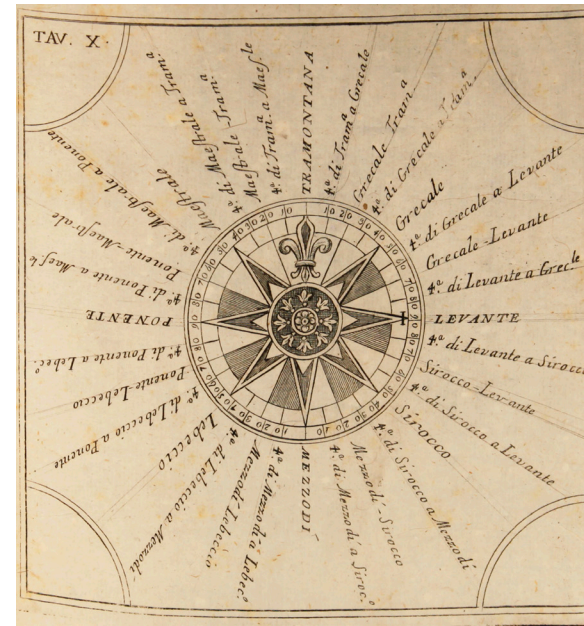 TAV. X.
TRAMONTANA
4.ª di Tram.ª a Grecale
Grecale Tram.ª
4.ª di Grecale a Tram.ª
Grecale
4.ª di Grecale a Levante
Grecale-Levante
4.ª di Levante a Grec.le
LEVANTE
4.ª di Levante a Sirocco
Sirocco-Levante
4.ª di Sirocco a Levante
Sirocco
4.ª di Sirocco a Mezzodí
Mezzodí-Sirocco
4.ª di Mezzodí a Siroc.º
MEZZODÍ
4.ª di Mezzodí a Lebec.º
Mezzodí Lebeccio
4.ª di Lebeccio a Mezzodí
Lebeccio
4.ª di Lebeccio a Ponente
Ponente Lebeccio
4.ª di Ponente a Lebec.º
PONENTE
4.ª di Ponente a Maeſ.le
Ponente-Maeſtrale
4.ª di Maeſtrale a Ponente
Maeſtrale
4.ª di Maeſtrale a Tram.ª
Maeſtrale-Tram.ª
4.ª di Tram.ª a Maeſ.le
10 20 30 40 50 60 70 80 90
80 70 60 50 40 30 20 10
10 20 30 40 50 60 70 80 90
80 70 60 50 40 30 20 10